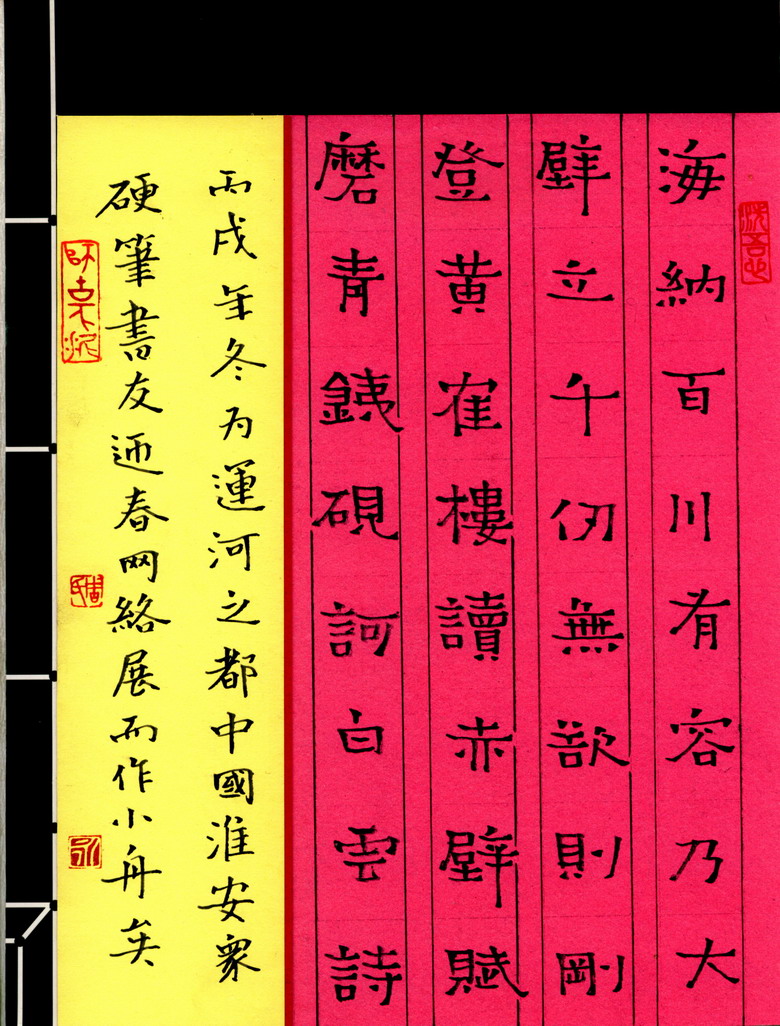 海納百川有容乃大
壁立千仞無欲則剛
登黄崔樓讀赤壁賦
磨青銕硯訶白雲詩
丙戌年冬为運河之都中國淮安衆
硬筆書友迎春网絡展而作小舟
師古不泥